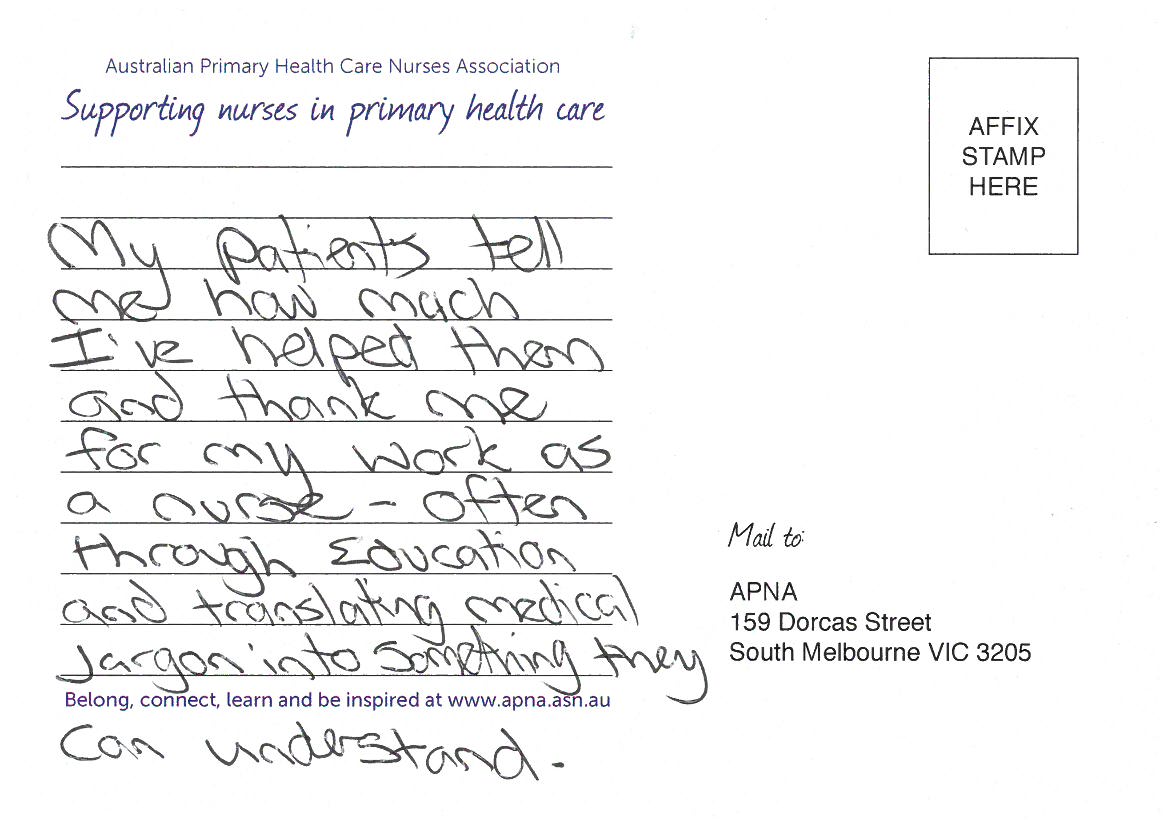 Australian Primary Health Care Nurses Association
Supporting nurses in primary health care
AFFIX
STAMP
HERE
My patients tell
me how much
I've helped them
and thank me
for my work as
a nurse - often
through Education
and translating medical
Jargon into something they
Belong, connect, learn and be inspired at www.apna.asn.au
can understand.
Mail to:
APNA
159 Dorcas Street
South Melbourne VIC 3205